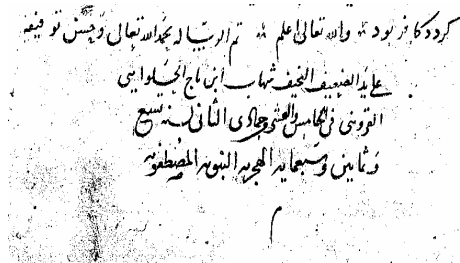 کردد کافر بود والله تعالی اعلم تم الرسالة بحمد الله تعالی وحسن توفیقه
علی ید الضعیف النحیف شهاب ابن تاج الحلوایی
القزوینی فی الخامس والعشر جمادی الثانی لسنه سبع
وثمانین وسبعمایه الهجریه النبویه المصطفویه
م